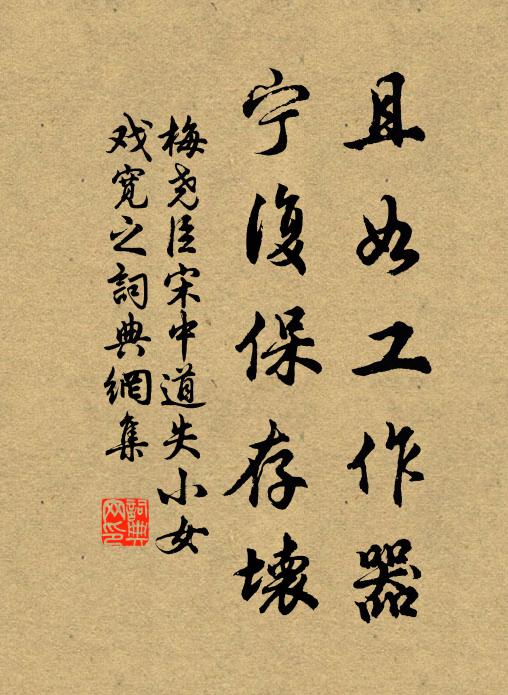 且如工作器
宁復保存壊
梅尧臣宋中道失小女
戏寛之詞典網集
詞典网印